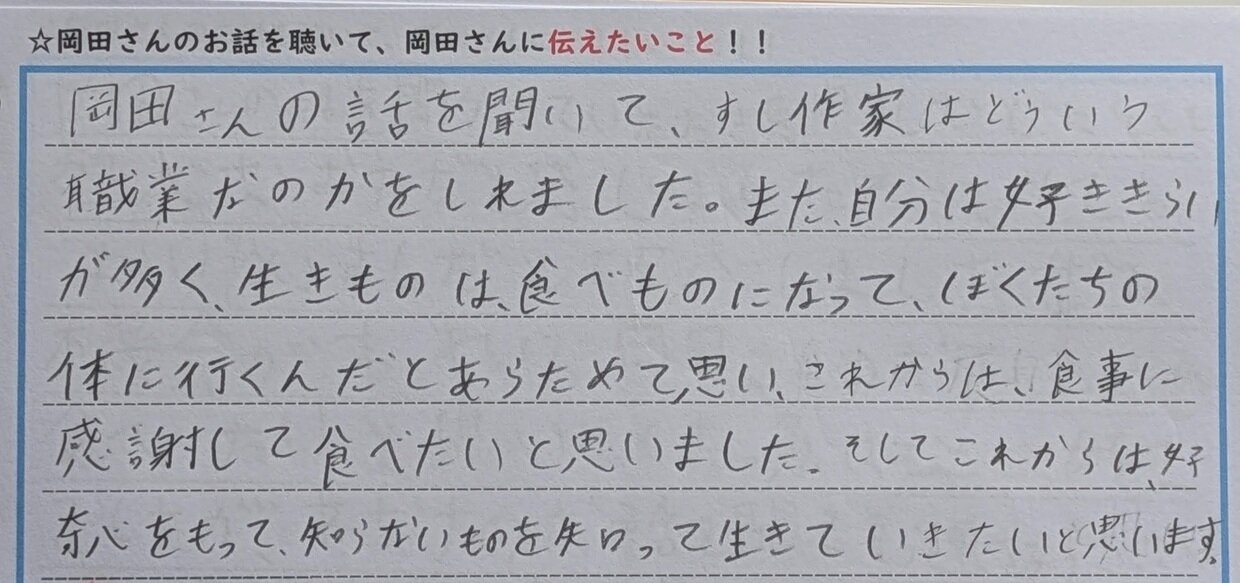 ☆岡田さんのお話を聴いて、岡田さんに伝えたいこと！！
岡田さんの話を聞いて、すし作家はどういう
職業なのかをしれました。また、自分は好ききらい
が多く、生きものは、食べものになって、ぼくたちの
体に行くんだとあらためて思い、これからは、食事に
感謝して食べたいと思いました。そしてこれからは、好
奈心をもって、知らないものを知って生きていきたいと思います。